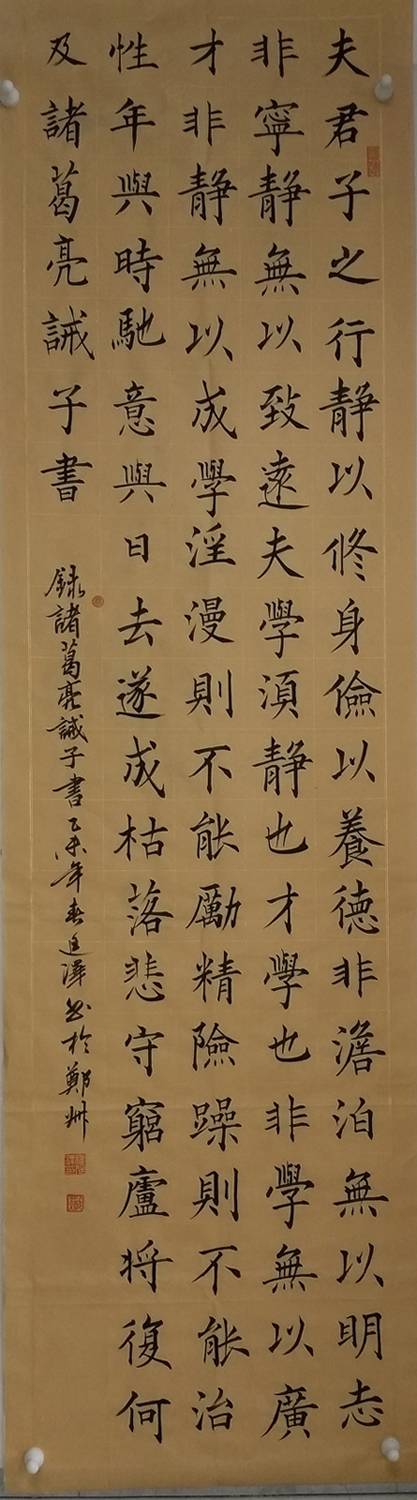 夫君子之行静以修身儉以養德非澹泊無以明志
非寧静無以致遠夫學須静也才學也非學無以廣
才非静無以成學淫漫則不能勵精險躁則不能治
性年與時馳意與日去遂成枯落悲守窮廬将復何
及諸葛亮誡子書
録諸葛亮誡子書乙未年春澤书於鄭州